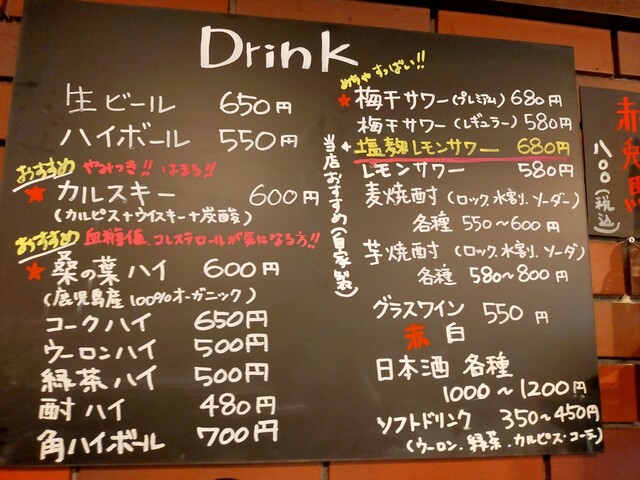 Drink
生ビール 650円
ハイボール 550円
おすすめ やみつき!! はまる!!
★カルスキー 600円
(カルピス+ウイスキー+炭酸)
おすすめ 血糖値、コレステロールが気になる方!!
★桑の葉ハイ 600円
(鹿児島産 100%オーガニック)
コークハイ 650円
ウーロンハイ 500円
緑茶ハイ 500円
酎ハイ 480円
角ハイボール 700円
めちゃすっぱい!!
★梅干サワー(プレミアム) 680円
梅干サワー(レギュラー) 580円
塩麹レモンサワー 680円
当店おすすめ(自家製)
レモンサワー 580円
麦焼酎 (ロック、水割り、ソーダー)
各種 550〜600円
芋焼酎 (ロック、水割り、ソーダ)
各種 580〜800円
グラスワイン 550円
赤 白
日本酒 各種
1000〜1200円
ソフトドリンク 350〜450円
(ウーロン、緑茶、カルピス・コーラ)
八〇〇(税込)